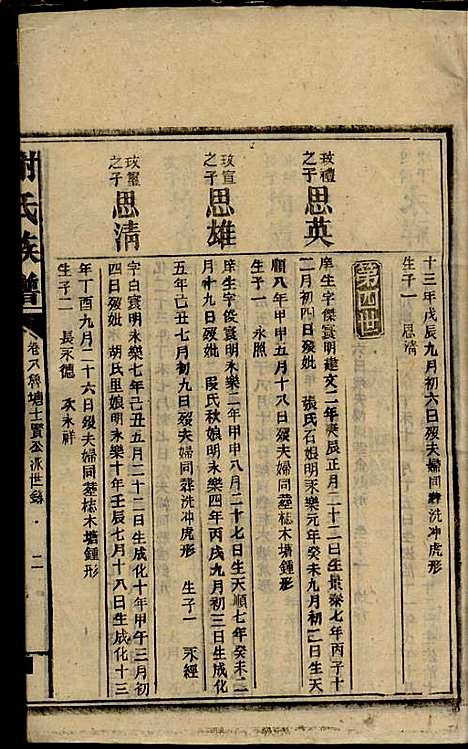 十三年戊辰九月初六日殁夫婦同葬洗冲虎形
生子一 思清
第四世
玫禮之子 思英
庠生字傑寰明建文二年庚辰正月二十二日生景泰七年丙子十
二月初四日殁妣 張氏石娘明永樂元年癸未九月初二日生天
順八年甲申五月十八日殁夫婦同塟梽木塘鍾形
生子一 永熙
玫宣之子 思雄
庠生字俊寰明永樂二年甲申八月二十七日生天順七年癸未二
月十九日殁妣 段氏秋娘明永樂四年丙戌九月初三日生成化
五年己丑七月初九日殁夫婦同葬洗冲虎形 生子一 永經
玫璽之子 思清
字白寰明永樂七年己丑五月二十二日生成化十年甲午三月初
四日殁妣 胡氏里娘明永樂十年壬辰七月十八日生成化十三
年丁酉九月二十六日殁夫婦同塟梽木塘鍾形
生子二 長永德 次永祥
氏族譜
卷八 塘士賢公派世錄
二